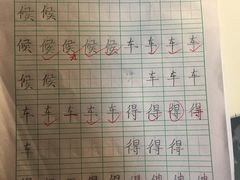 候 候
候 候 候 候 候 车 车 车 车
候 候 车 车
车 车 车 车 车 得 得 得 得
车 得 得 得